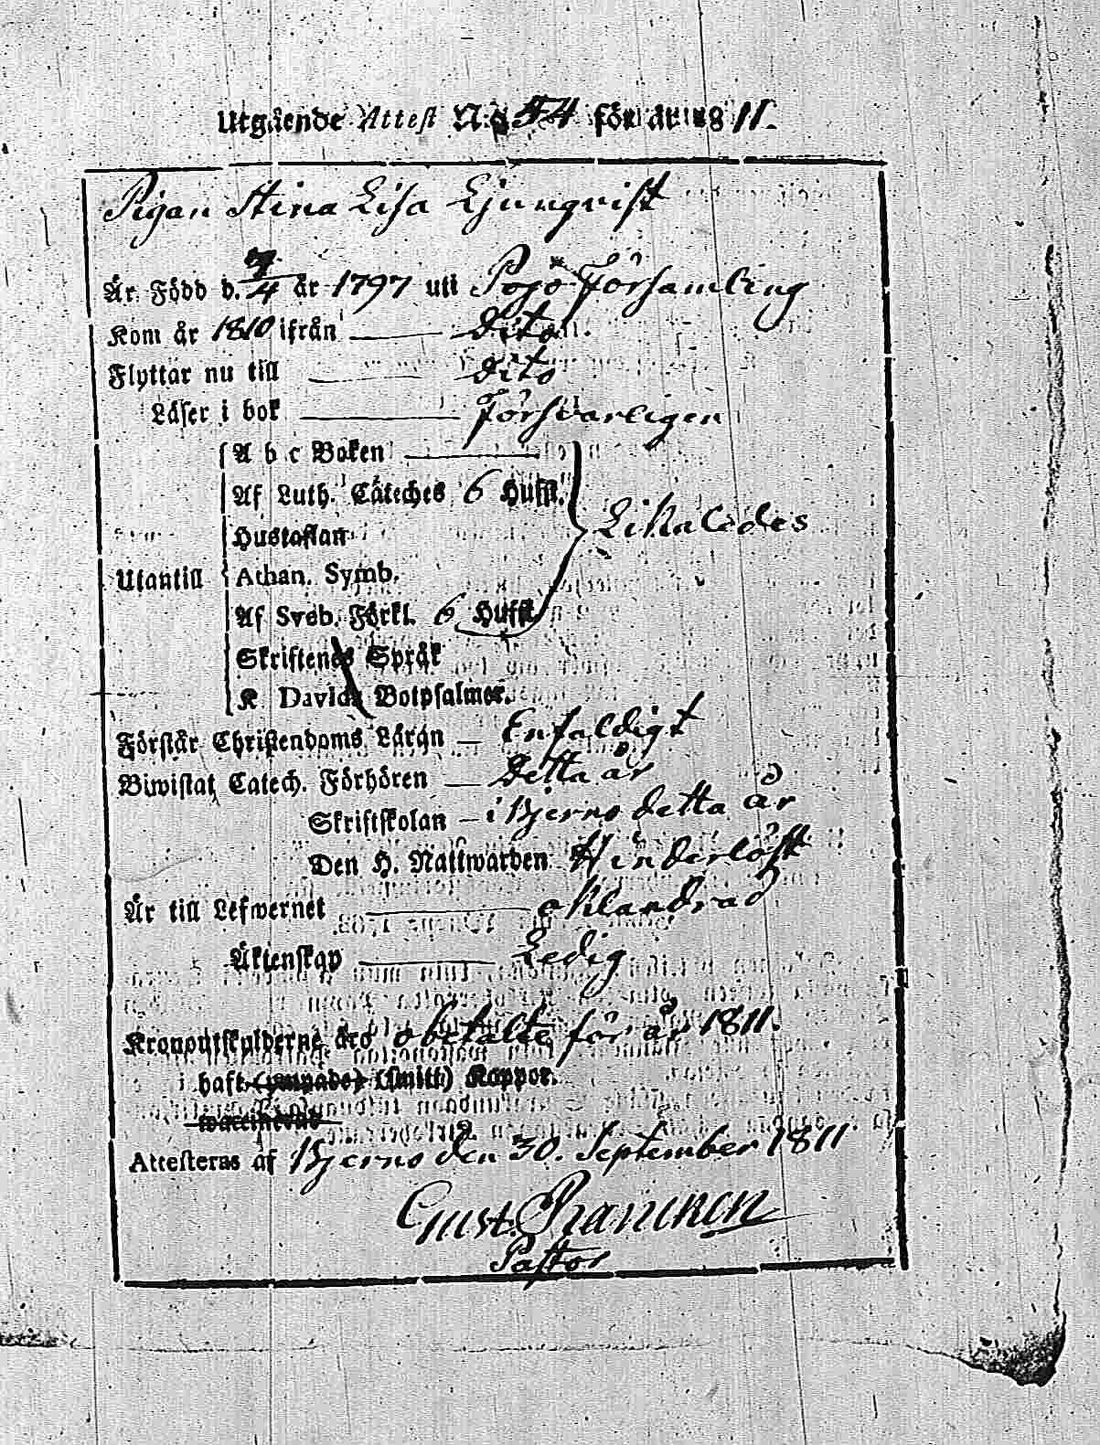 Utgående Attest N:o 54 för år 1811.
Pigan Stina Lisa Ljungqvist
Är Född d. 7/4 år 1797 uti Pojo Församling
Kom år 1810 ifrån Dito
Flyttar nu till dito
Läser i bok Försvarligen
A b c Boken
Af Luth. Cateches 6 Hufst.
Hustaflan Likaledes
Utantill Athan. Symb.
Af Sveb. Förkl. 6 Hufst.
Skriftenes Språk
K Davids Botpsalmer.
Förstår Christendoms Läran Enfaldigt
Biwistat Catech. Förhören Detta år
Skriftskolan i Bjerno detta år
Den H. Nattwarden Hinderlöst
Är till Lefwernet oklandrad
Äktenskap Ledig
Kronoutskylderne äro obetalte för år 1811.
haft (ympade) (smitt) Koppor.
Attesteras af Bjerno den 30. September 1811
Gust.
Pastor